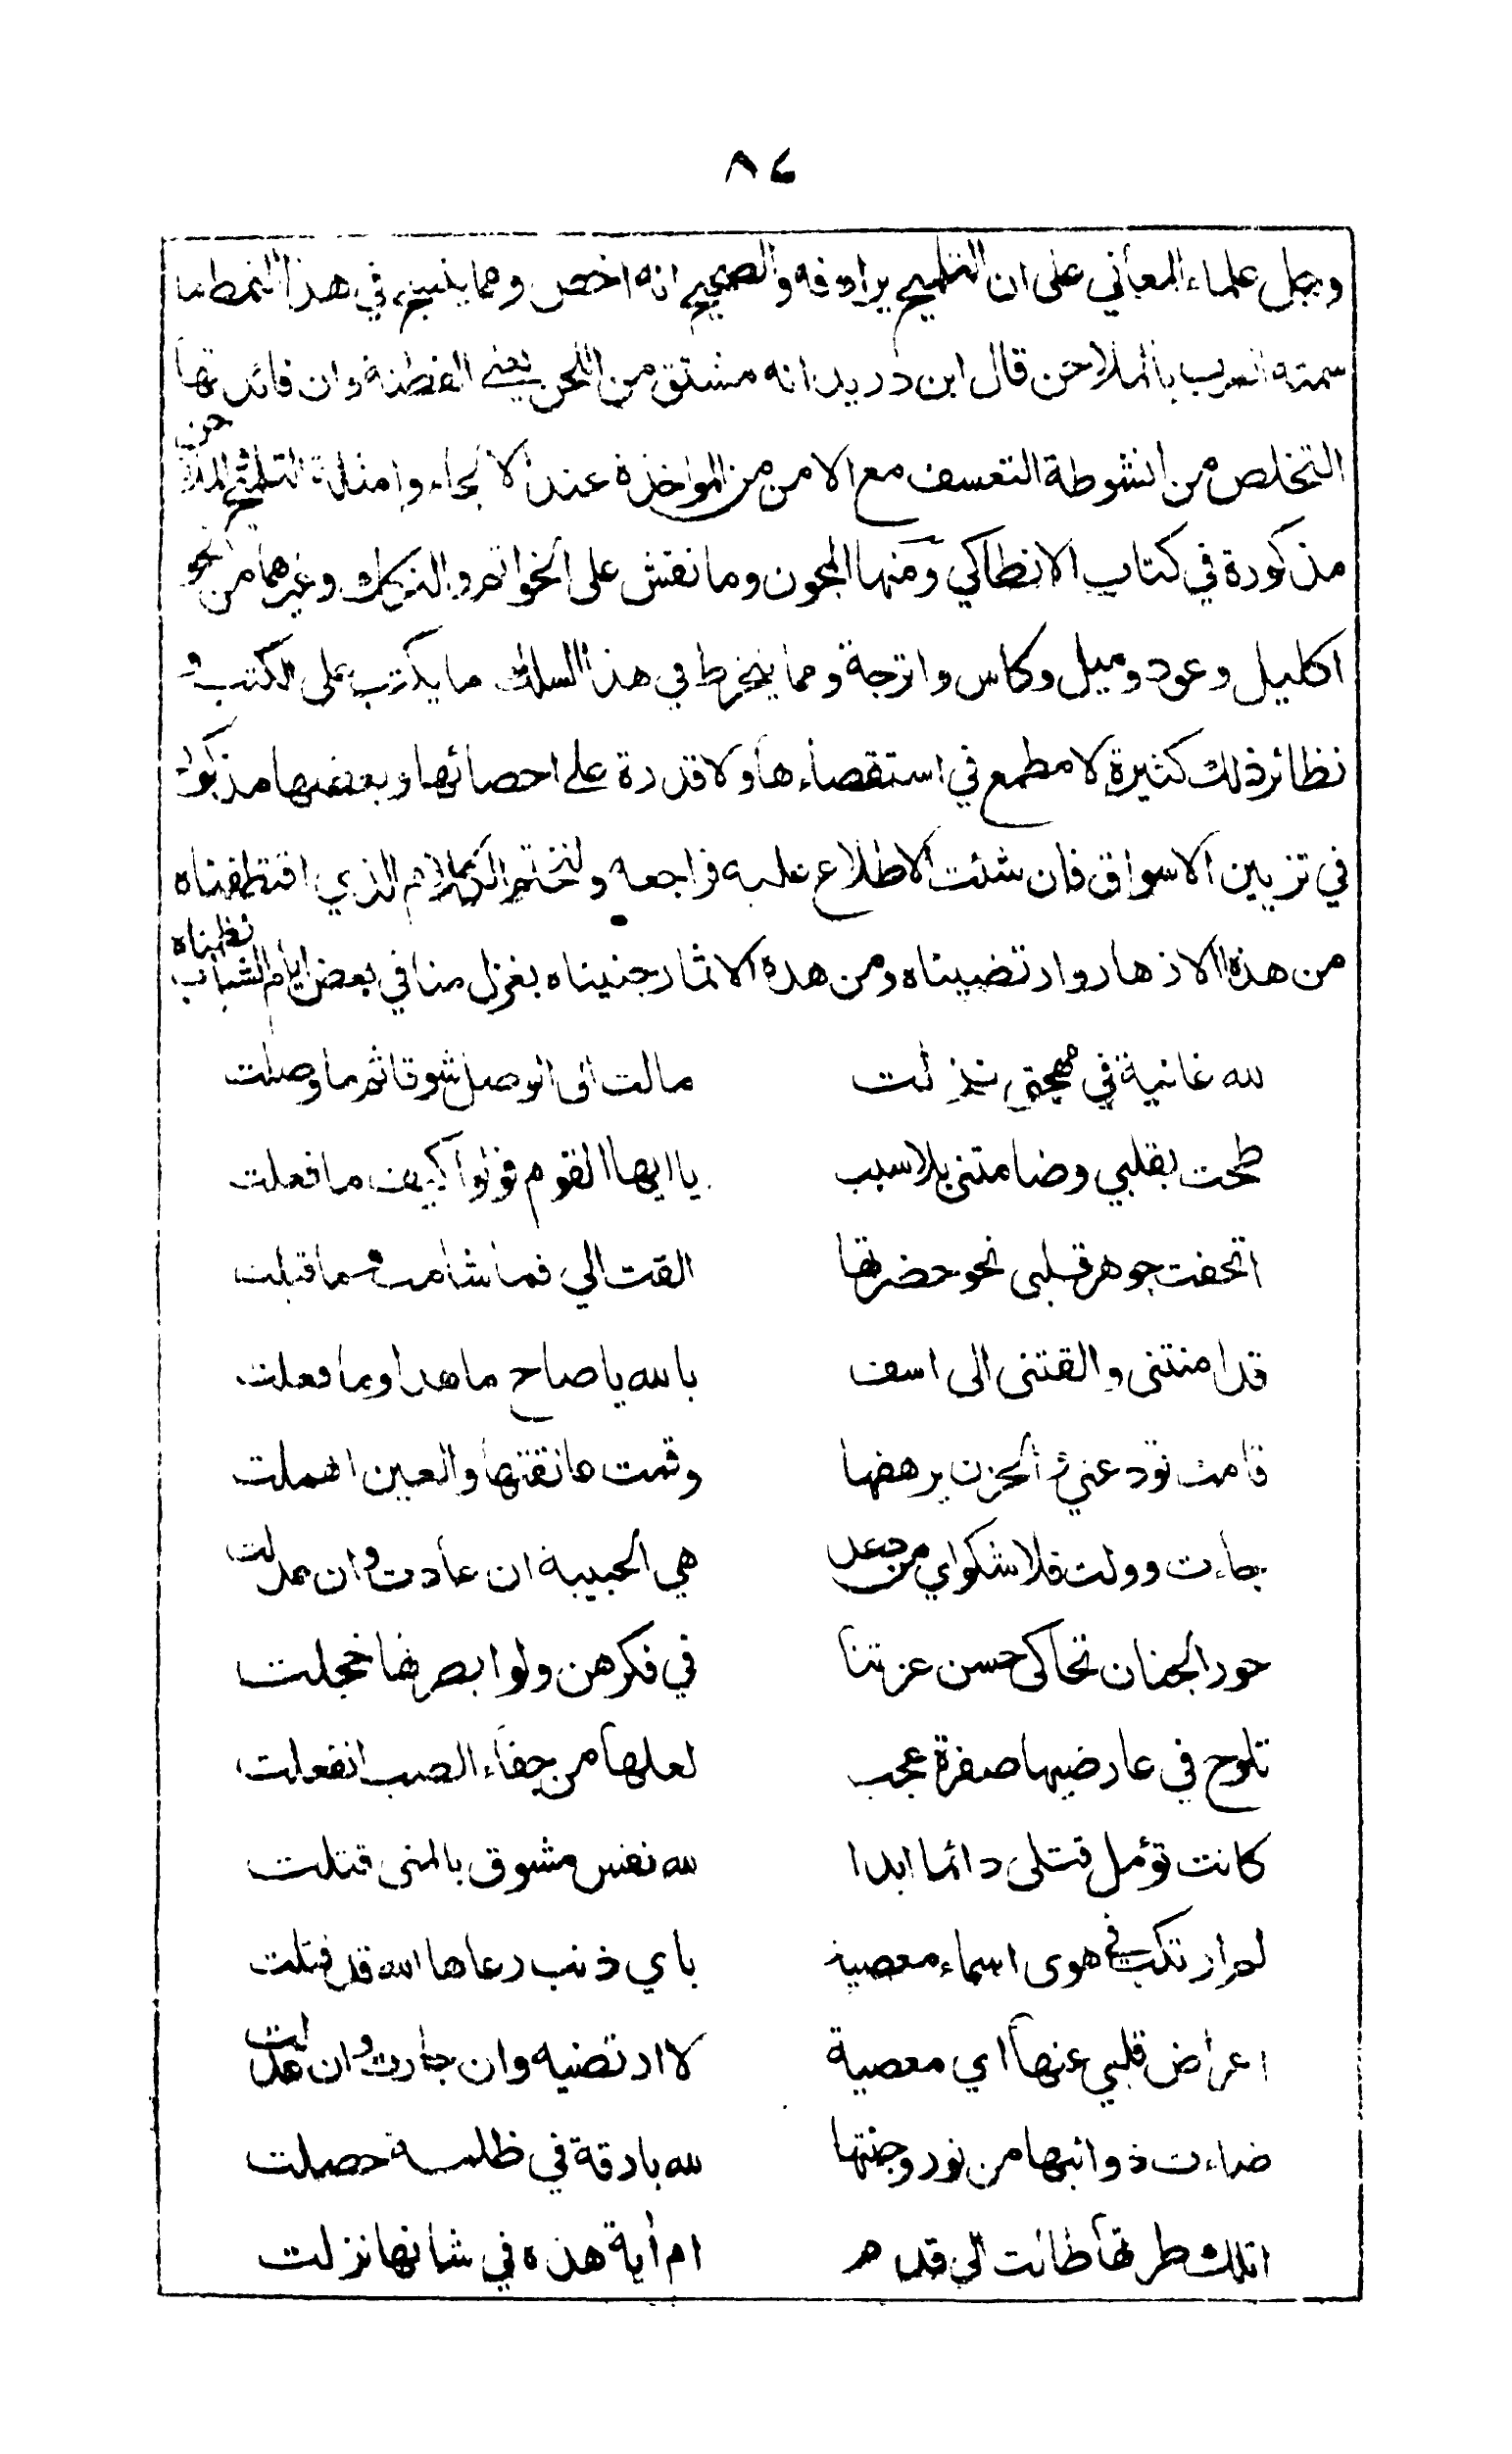 ٨٤
وجل علماء المعاني على ان التلميح يرادفه والصحيح انه اخص ومما ينسج في هذا النمط ما
سمته العرب بالملاحن قال ابن دريد انه مشتق من اللحن يعني الفطنة وان فائدتها
التخلص من انشوطة التعسف مع الامن من المواخذة عند الالجاء وامثلة التلميح الملاحن
مذكورة في كتاب الانطاكي ومنها المجون وما نقش على الخواتم والتكك وغيرهما من نحو
اكليل وعود وميل وكاس واترجة ومما ينخرط في هذا السلك ما يكتب على الكتب و
نظائر ذلك كثيرة لا مطمع في استقصاءها ولا قدرة على احصائها وبعضها مذكور
في تزيين الاسواق فان شئت الاطلاع عليه فراجعه ولنختم الكلام الذي اقتطفناه
من هذه الازهار وارتضيناه ومن هذه الاثمار جنيناه بغزل منا في بعض ايام الشباب نظمناه
لله غانية في مهجتي نزلت مالت الى الوصل شوقا ثم ما وصلت
طحت بقلبي وضامتني بلا سبب يا ايها القوم قولوا كيف ما فعلت
اتحفت جوهر قلبي نحو حضرتها القت الي فما شامت وما قبلت
قد امنتني والقتني الى اسف بالله يا صاح ما هذا وما فعلت
قامت تودعني والحزن يرهضها وقمت عانقتها والعين اهملت
جاءت وولت فلا شكواي من دعد هي الحبيبة ان عادت وان عدلت
حور الجنان تحاكي حسن عزتنا في فكرهن ولو ابصرنها خجلت
تلوح في عارضيها صفرة عجب لعلها من جفاء الصب انفعلت
كانت تؤمل قتلى دائما ابدا لله نفس مشوق بالمنى قتلت
لم ارتكب في هوى اسماء معصية باي ذنب رعاها الله قد قتلت
اعراض قلبي عنها اي معصية لا ارتضيه وان جارت وان عدلت
ضاءت ذوائبها من نور وجنتها لله بارقة في ظلمة حصلت
اتلك طرتها طالت الى قدم ام أية هذه في شانها نزلت